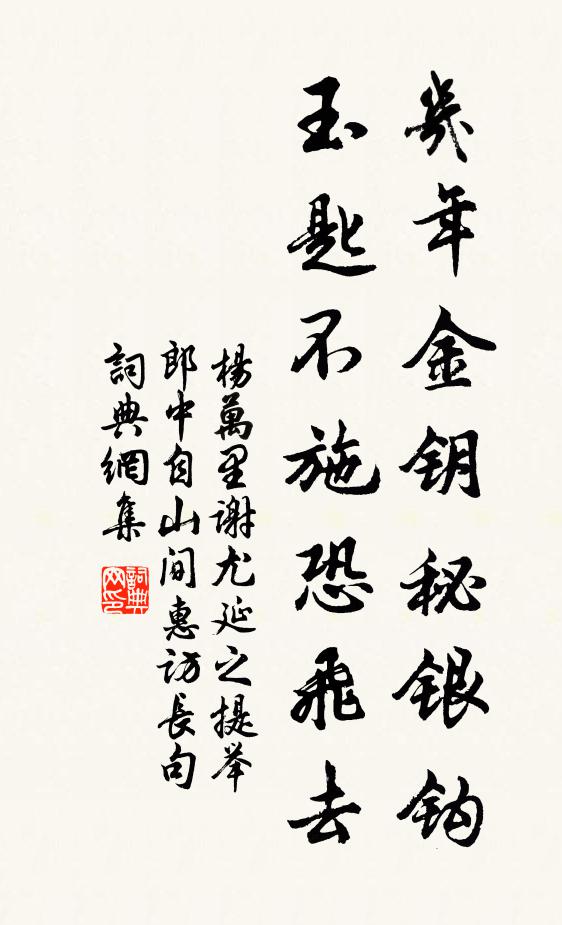 幾年金钥秘銀钩
玉匙不施恐飛去
楊萬里谢尤延之提举
郎中自山间惠访長句
詞典網集
詞典网印